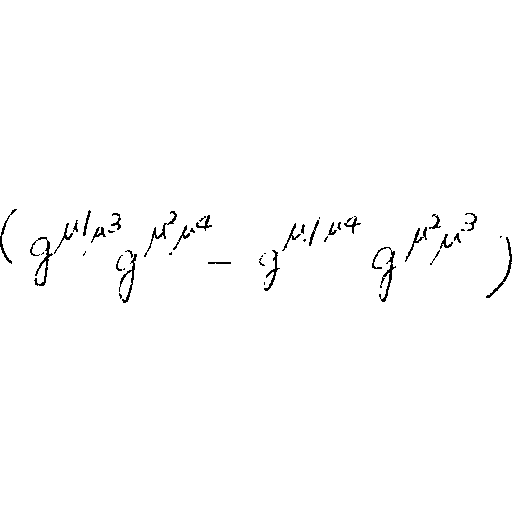 (g^{μ1μ3}g^{μ2μ4} - g^{μ1μ4}g^{μ2μ3})